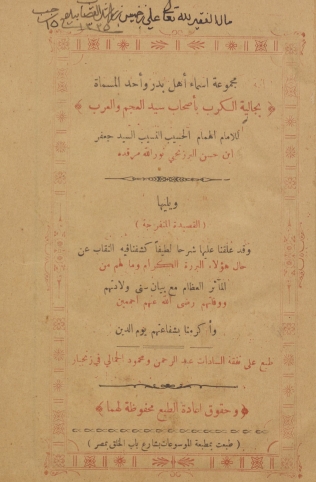 مالا الفقير لله تعالى علي خميس
١٣٣٥
١٥ رجب
مجموعة اسماء أهل بدر وأحد المسماة
﴿ بجالية الكرب بأصحاب سيد العجم والعرب ﴾
للامام الهمام الحسيب النسيب السيد جعفر
ابن حسن البرزنجي نور الله مرقده
ويليها
( القصيدة المنفرجة )
وقد علقنا عليها شرحا لطيفا كشفنا فيه النقاب عن
حال هؤلاء البررة الكرام وما لهم من
المآثر العظام مع بيان سني ولادتهم
ووفاتهم رضى الله عنهم أجمعين
وأكرمنا بشفاعتهم يوم الدين
طبع على نفقة السادات عبد الرحمن ومحمود الجمالي في زنجبار
﴿ وحقوق اعادة الطبع محفوظة لهما ﴾
( طبعت بمطبعة الموسوعات بشارع باب الخلق بمصر )